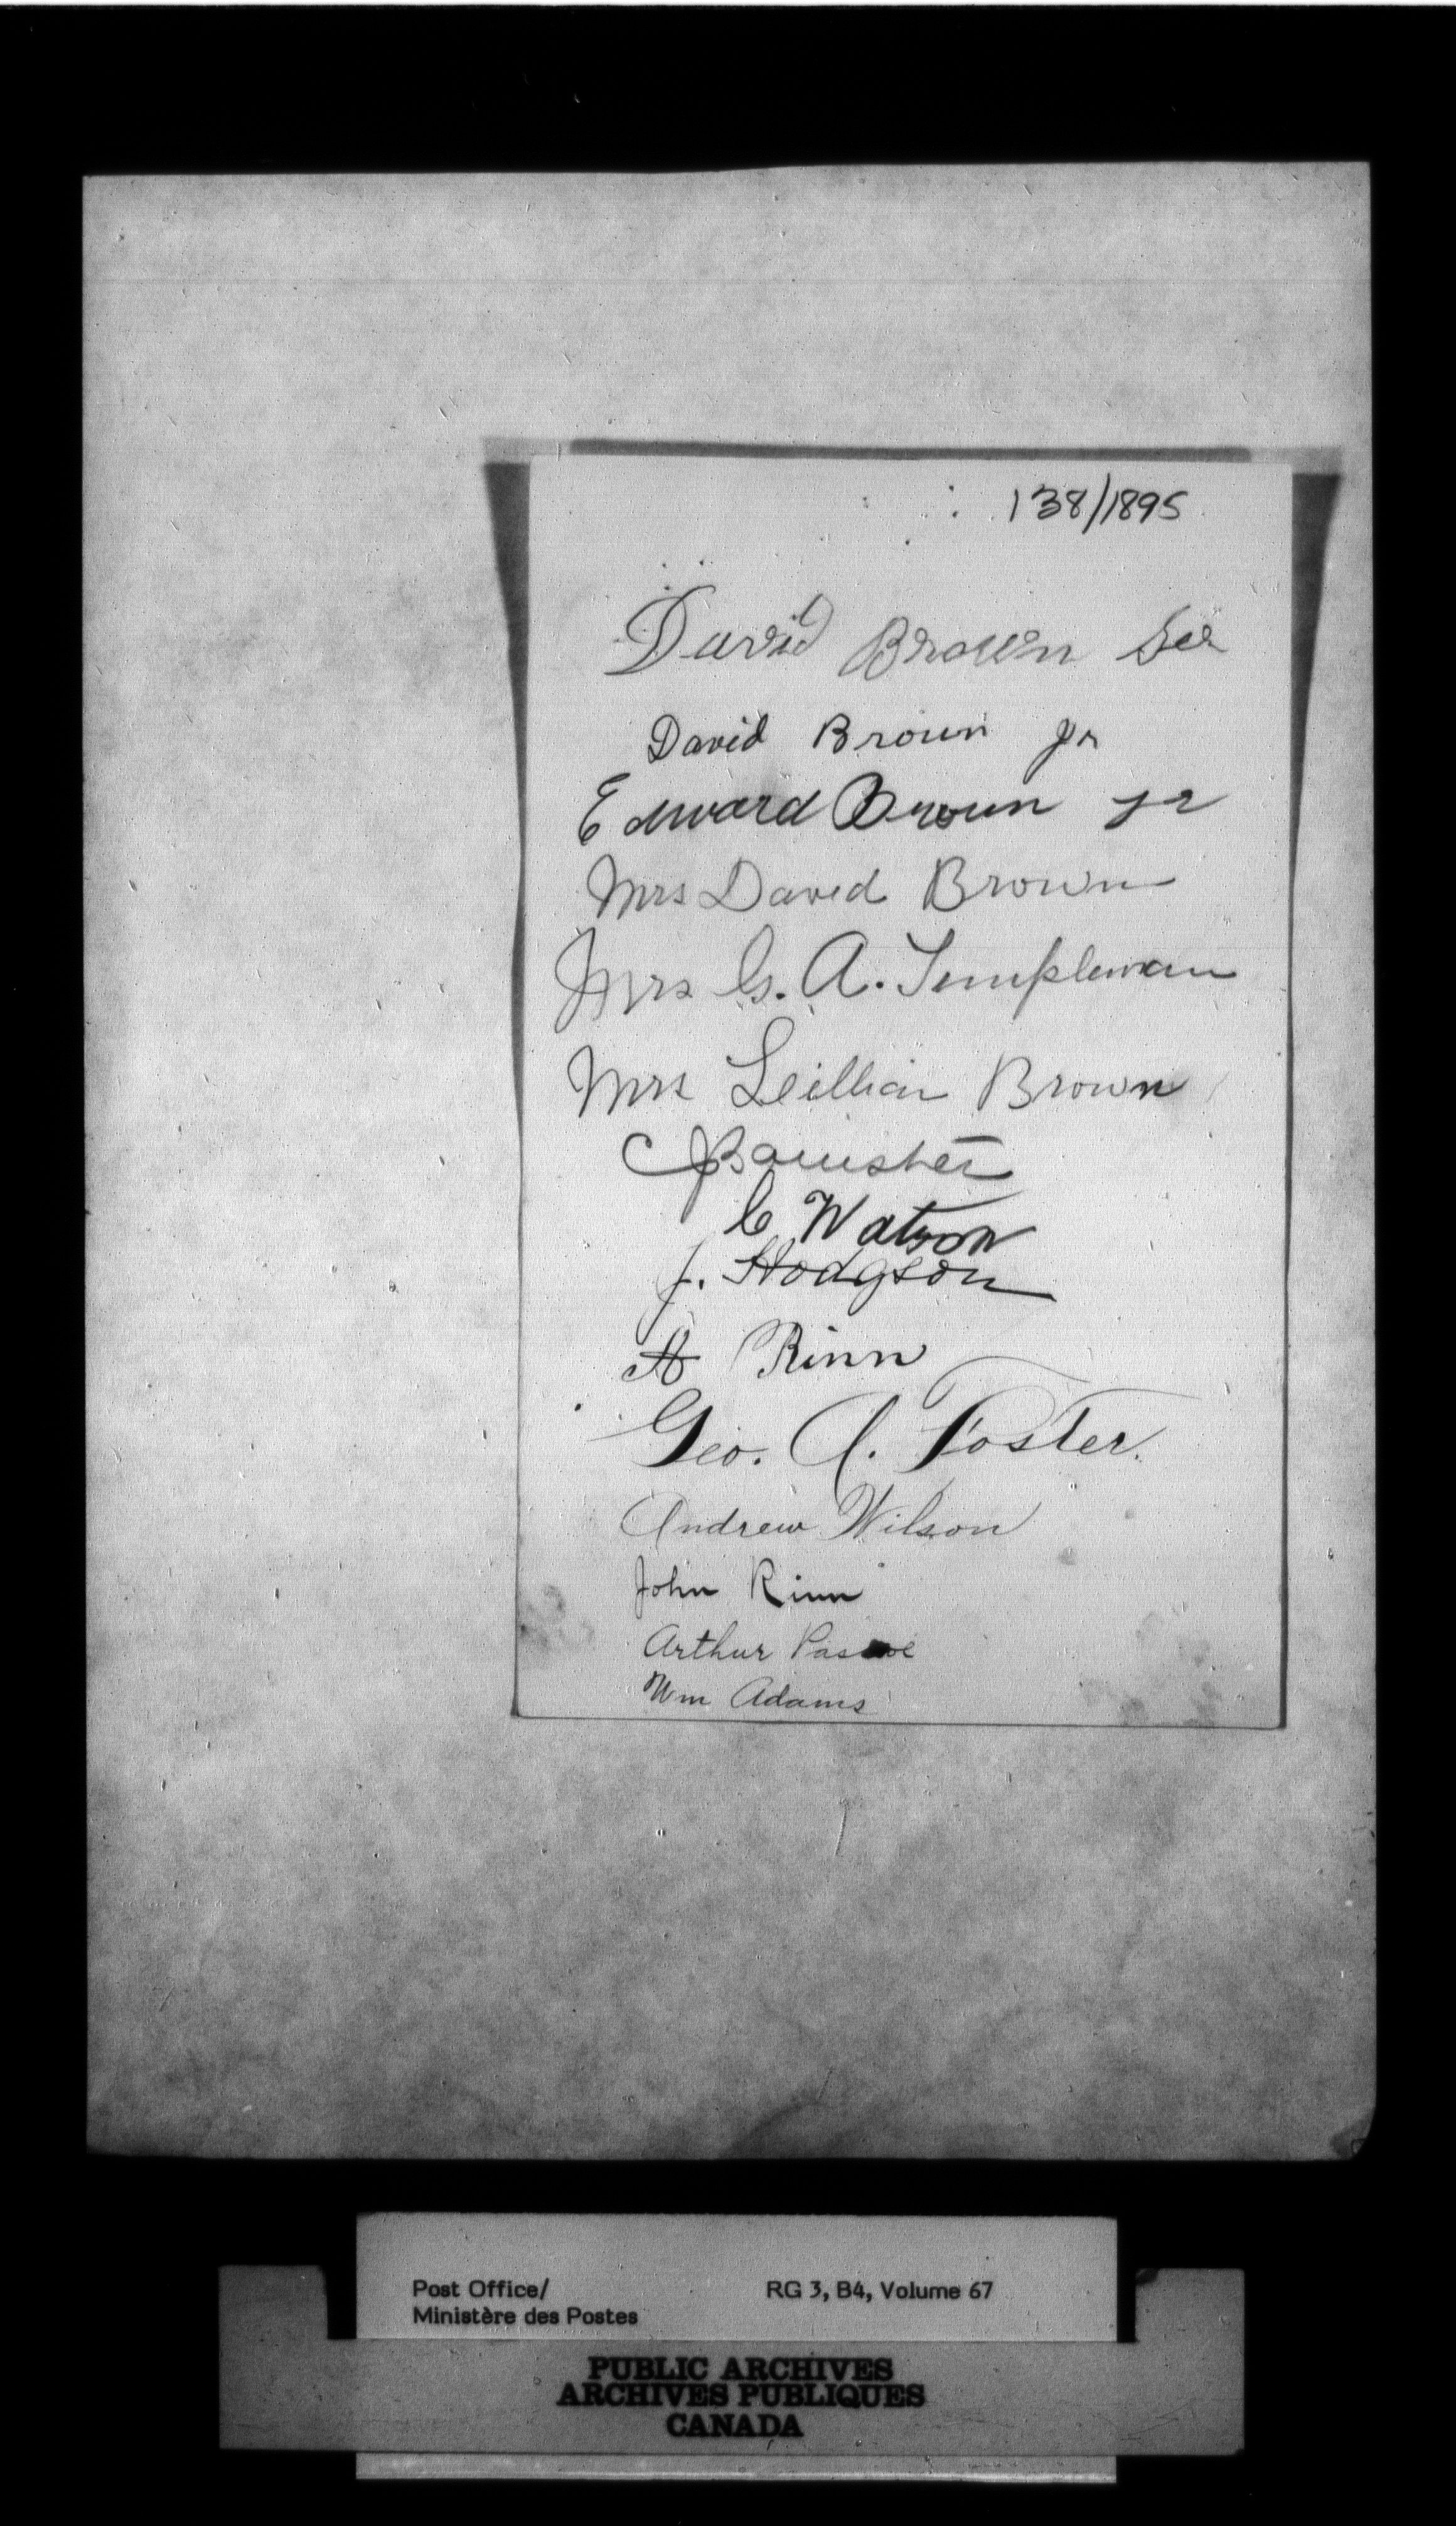 138/1895
David Brown Ser
David Brown Jr
Edward Brown Jr
Mrs David Brown
Mrs G. A. Templeman
Mrs Leillian Brown
C Banister
C Watson
J. Hodgson
A Rinn
Geo. A. Foster.
Andrew Wilson
John Rinn
Arthur Pascoe
Wm Adams
Post Office/ RG 3, B4, Volume 67
Ministère des Postes
PUBLIC ARCHIVES
ARCHIVES PUBLIQUES
CANADA